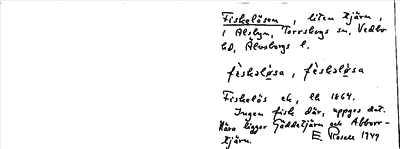 Fiskelösen, liten tjärn,
i Alebyn, Torrskogs sn, Vedbo
hd, Älvsborgs l.
fèskeløsa, fèskeløsa
Fiskelös ek, lk 1864.
Ingen fisk där, uppges det.
Nära ligger Gäddetjärn och Abborr-
tjärn. E. Rosell 1949